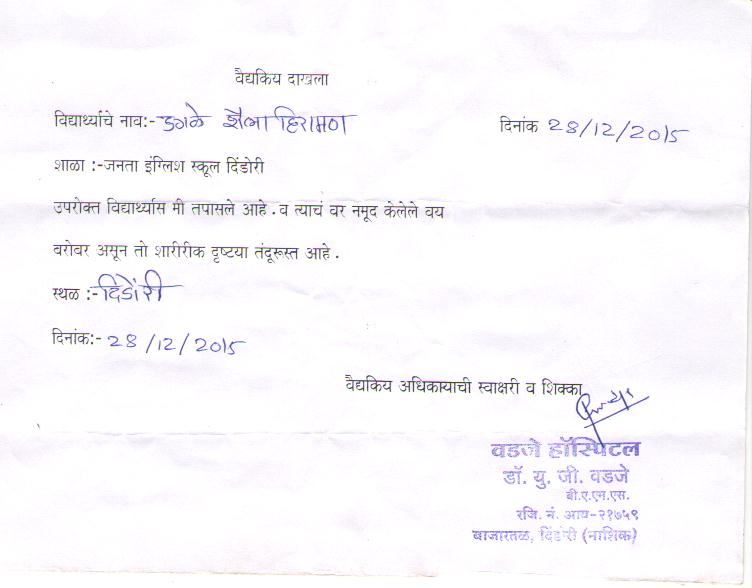 वैद्यकिय दाखला
विद्यार्थ्याचे नाव:- डगळे शैला हिरामण दिनांक 28/12/2015
शाळा :-जनता इंग्लिश स्कूल दिंडोरी
उपरोक्त विद्यार्थ्यास मी तपासले आहे . व त्याचं वर नमूद केलेले वय
बरोबर असून तो शारीरीक दृष्टया तंदूरूस्त आहे .
स्थळ :- दिंडोंरी
दिनांक:- 28/12/2015
वैद्यकिय अधिकायाची स्वाक्षरी व शिक्का
वडजे हॉस्पिटल
डॉ. यु. जी. वडजे
बी.ए.एम.एस.
रजि. नं. आय-२१७५९
बाजारतळ, दिंडोरी (नाशिक)